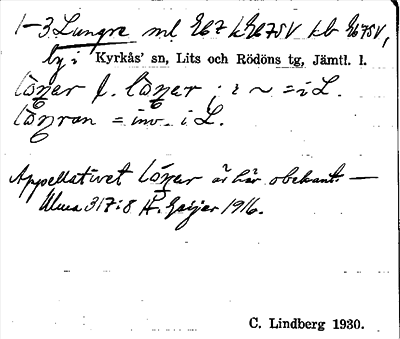 1-3 Lungre ml 967 h 9675V kb 9675V,
by i Kyrkås' sn, Lits och Rödöns tg, Jämtl. l.
löŋer f. löŋer : i ~ = i L.
löŋran = inv. i L.
Appellativet löŋer är här obekant. —
Ulma 317:8 H. Geijer 1916.
C. Lindberg 1930.